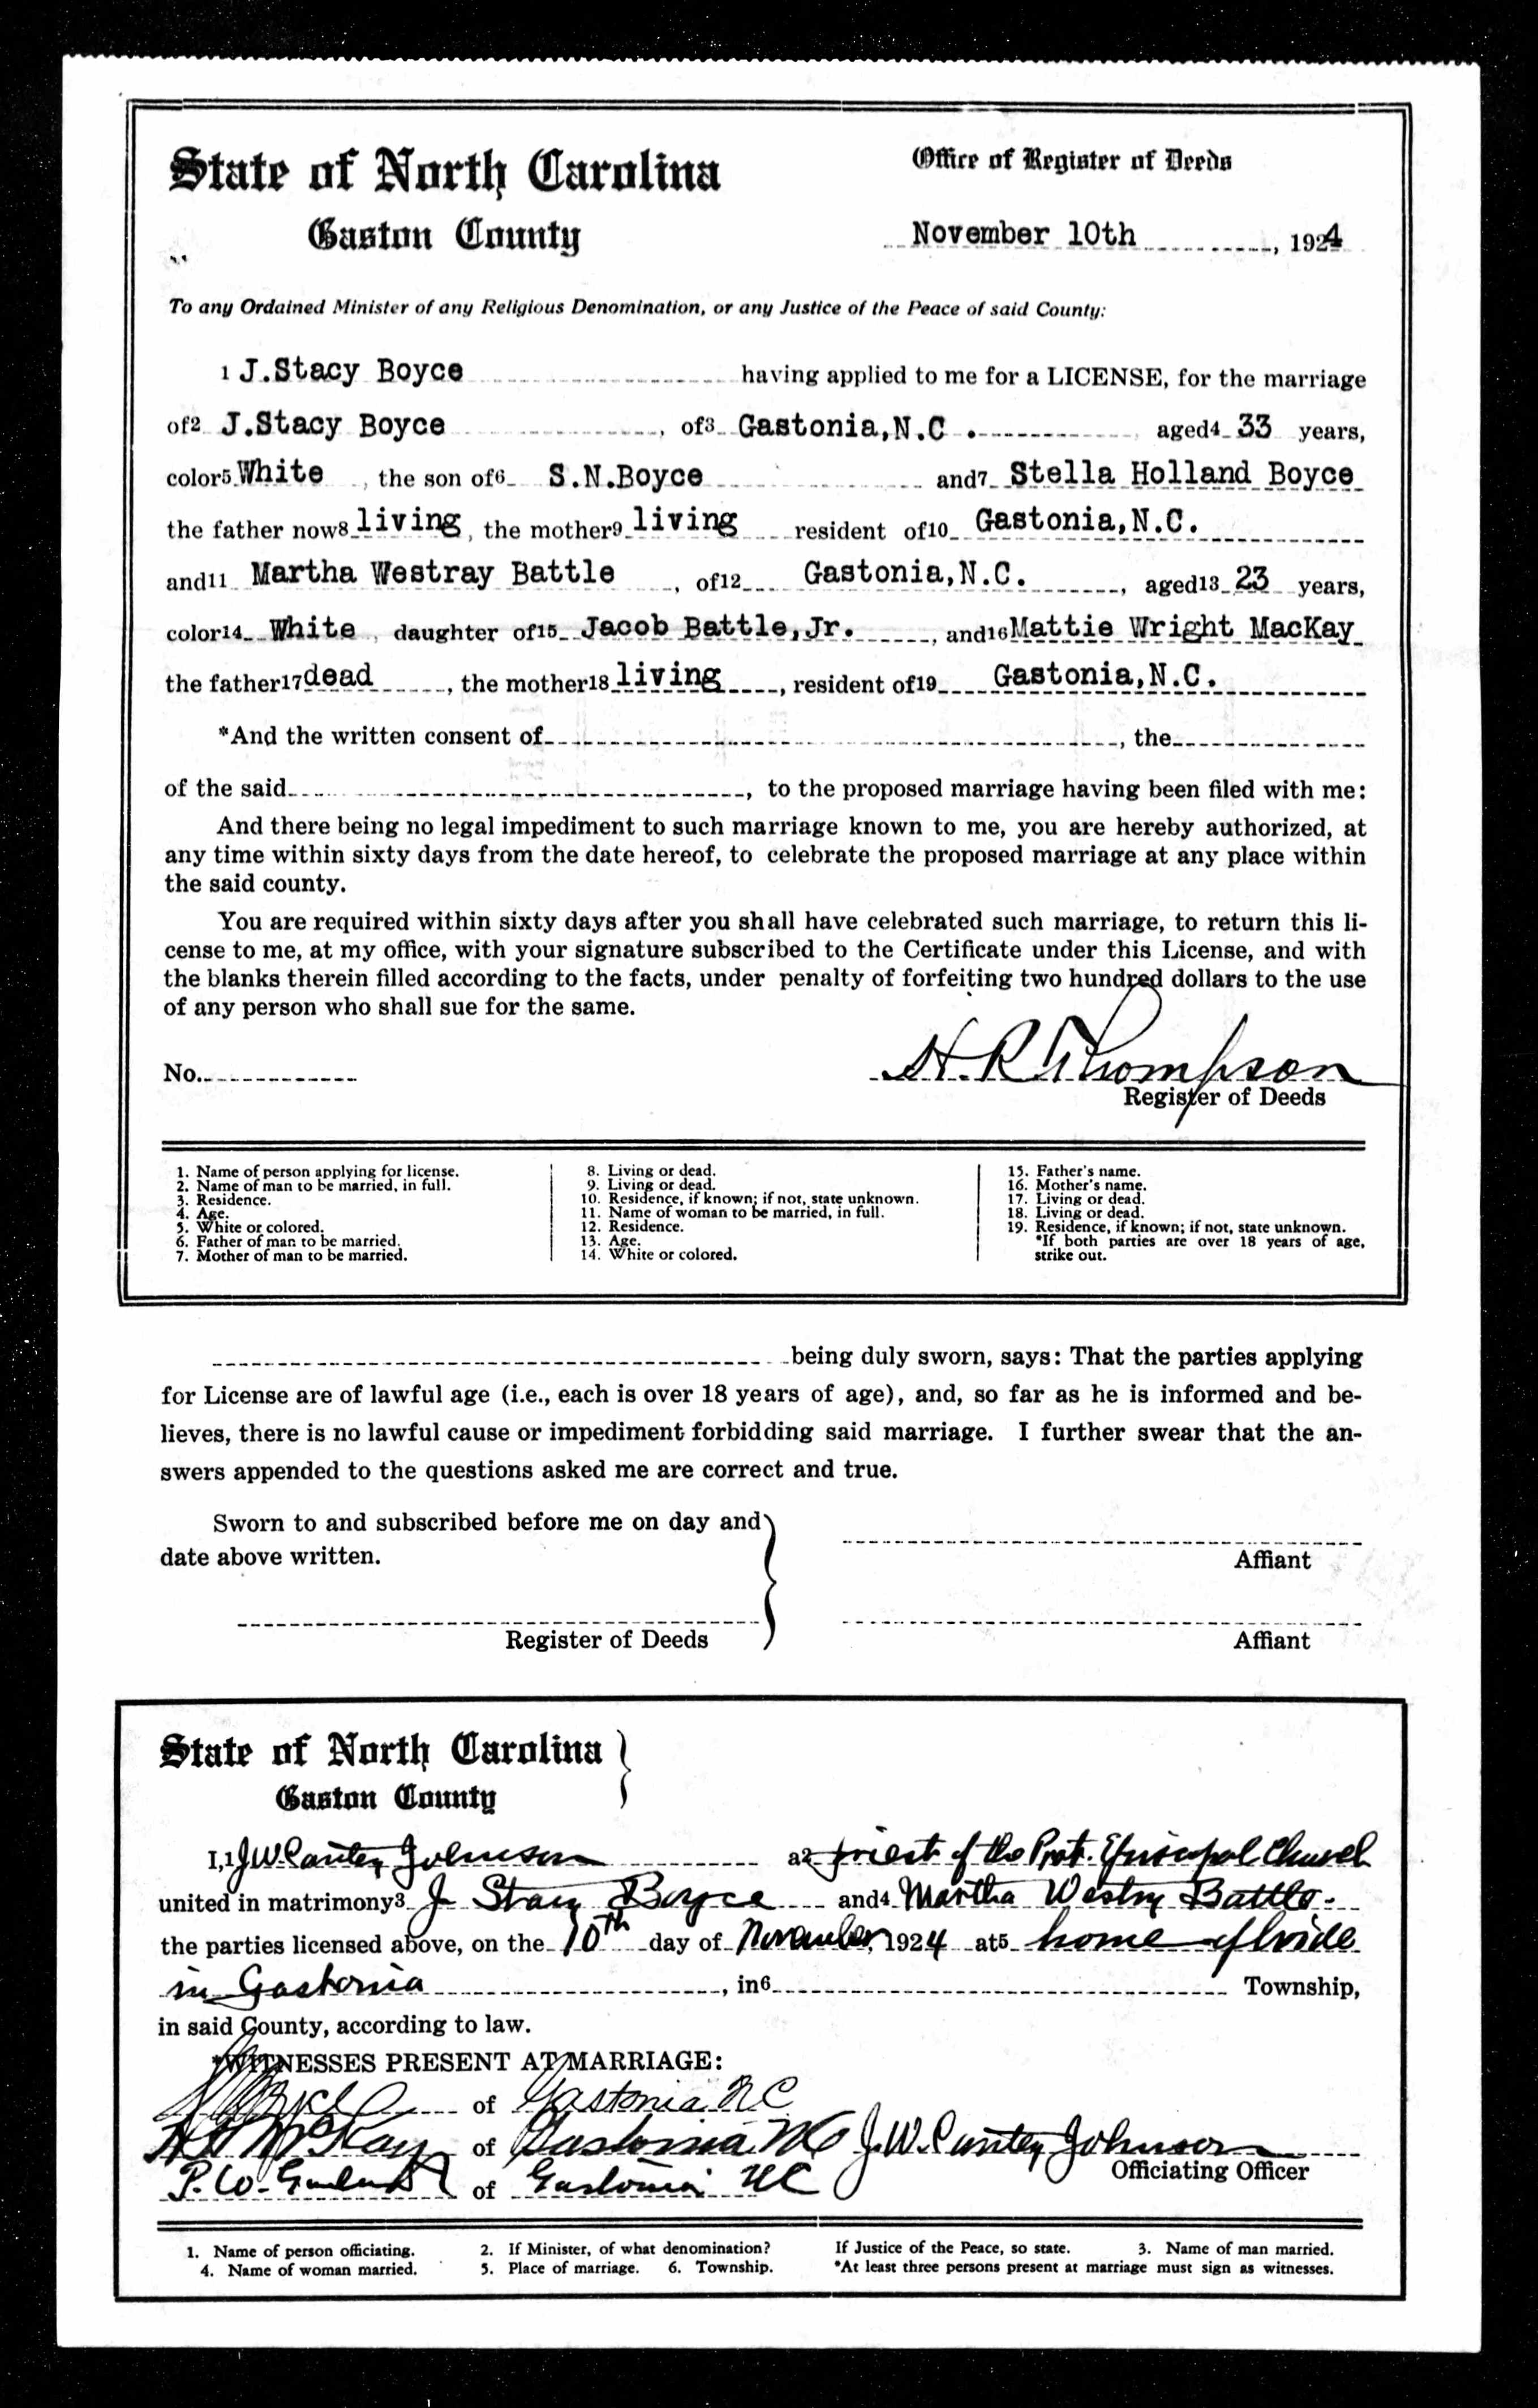 State of North Carolina
Gaston County
Office of Register of Deeds
November 10th, 1924
To any Ordained Minister of any Religious Denomination, or any Justice of the Peace of said County:
1 J.Stacy Boyce having applied to me for a LICENSE, for the marriage
of2 J.Stacy Boyce, of3 Gastonia,N.C. aged4 33 years,
color5 White, the son of6 S.N.Boyce and7 Stella Holland Boyce
the father now8 living, the mother9 living resident of10 Gastonia,N.C.
and11 Martha Westray Battle, of12 Gastonia,N.C., aged13 23 years,
color14 White, daughter of15 Jacob Battle,Jr., and16 Mattie Wright MacKay
the father17 dead, the mother18 living, resident of19 Gastonia,N.C.
*And the written consent of, the
of the said, to the proposed marriage having been filed with me:
And there being no legal impediment to such marriage known to me, you are hereby authorized, at
any time within sixty days from the date hereof, to celebrate the proposed marriage at any place within
the said county.
You are required within sixty days after you shall have celebrated such marriage, to return this li-
cense to me, at my office, with your signature subscribed to the Certificate under this License, and with
the blanks therein filled according to the facts, under penalty of forfeiting two hundred dollars to the use
of any person who shall sue for the same.
No.
H.R Thompson
Register of Deeds
1. Name of person applying for license.
2. Name of man to be married, in full.
3. Residence.
4. Age.
5. White or colored.
6. Father of man to be married.
7. Mother of man to be married.
8. Living or dead.
9. Living or dead.
10. Residence, if known; if not, state unknown.
11. Name of woman to be married, in full.
12. Residence.
13. Age.
14. White or colored.
15. Father's name.
16. Mother's name.
17. Living or dead.
18. Living or dead.
19. Residence, if known; if not, state unknown.
*If both parties are over 18 years of age,
strike out.
being duly sworn, says: That the parties applying
for License are of lawful age (i.e., each is over 18 years of age), and, so far as he is informed and be-
lieves, there is no lawful cause or impediment forbidding said marriage. I further swear that the an-
swers appended to the questions asked me are correct and true.
Sworn to and subscribed before me on day and
date above written.
Affiant
Register of Deeds
Affiant
State of North Carolina
Gaston County
I,1 J.W. Cantey Johnson a2 priest of the Prot. Episcopal Church
united in matrimony3 J Stacy Boyce and4 Martha Westry Battle
the parties licensed above, on the 10th day of November, 1924 at5 home of bride
in Gastonia, in6 Township,
in said County, according to law.
*WITNESSES PRESENT AT MARRIAGE:
of Gastonia N C
McKay of Gastonia NC
P. W. of Gastonia NC
J.W. Cantey Johnson
Officiating Officer
1. Name of person officiating. 2. If Minister, of what denomination? If Justice of the Peace, so state. 3. Name of man married.
4. Name of woman married. 5. Place of marriage. 6. Township. *At least three persons present at marriage must sign as witnesses.